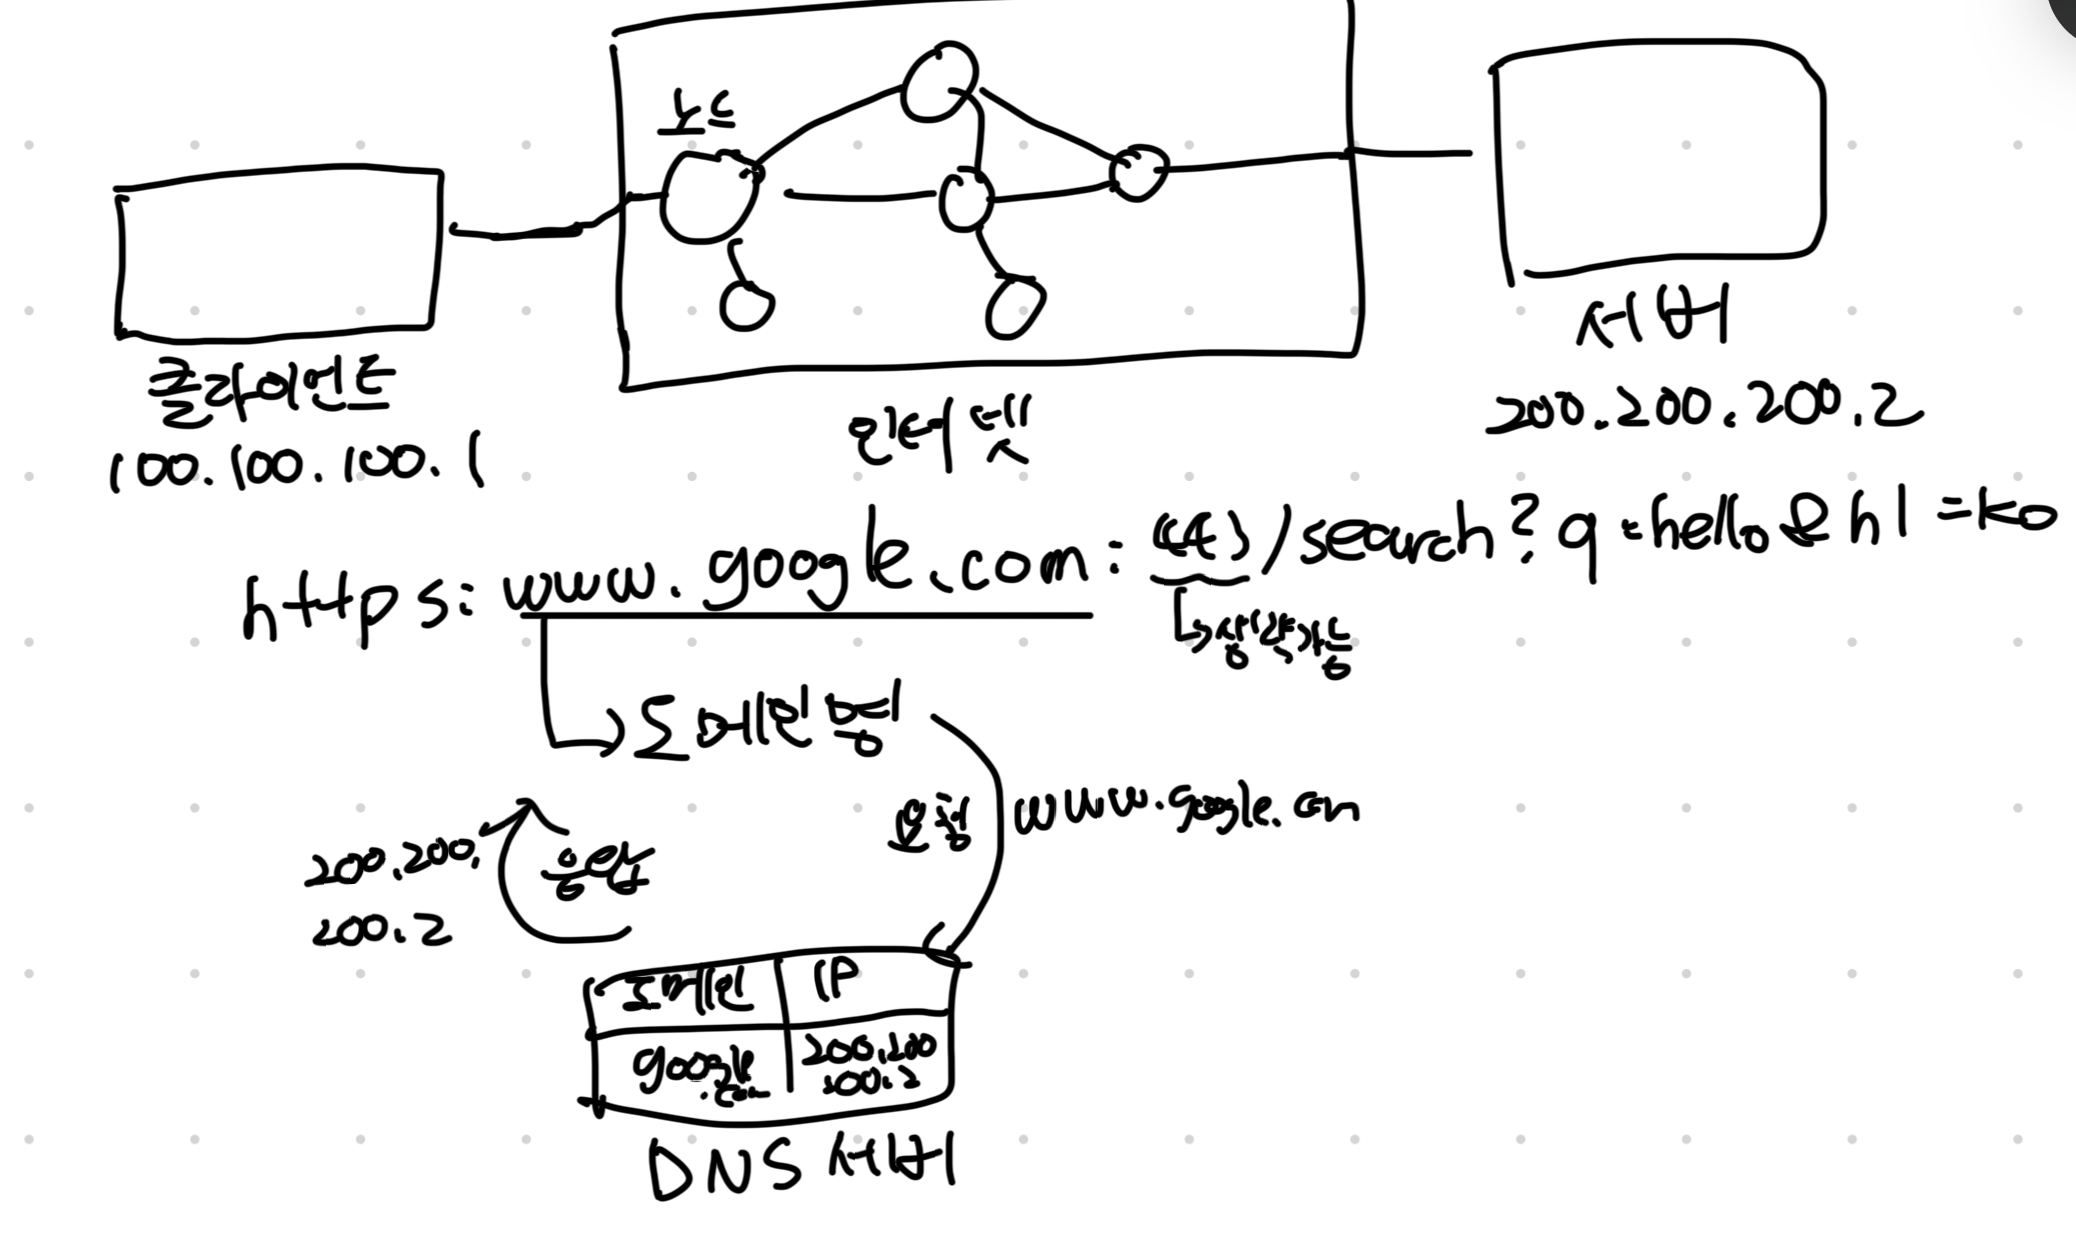 노드
클라이언트
100.100.100.1
인터넷
서버
200.200.200.2
https: www.google.com: 443/search?q=hello&hl=ko
↳생략가능
도메인명
요청
www.google.com
200.200.
200.2
응답
도메인 IP
google 200.200
.com 200.2
DNS 서버